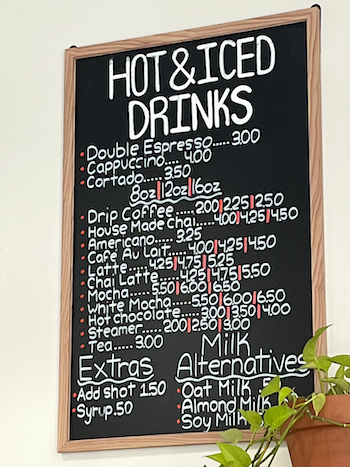 HOT & ICED
DRINKS
• Double Espresso..... 3.00
• Cappuccino.... 4.00
• Cortado.... 3.50
8oz|12oz|16oz
• Drip Coffee..... 2.00|2.25|2.50
• House Made Chai..... 4.00|4.25|4.50
• Americano..... 3.25
• Cafe Au Lait..... 4.00|4.25|4.50
• Latte..... 4.25|4.75|5.25
• Chai Latte..... 4.25|4.75|5.50
• Mocha..... 5.50|6.00|6.50
• White Mocha..... 5.50|6.00|6.50
• Hot chocolate.... 3.00|3.50|4.00
• Steamer..... 2.00|2.50|3.00
• Tea..... 3.00
Extras
• Add shot 1.50
• Syrup .50
Milk
Alternatives
• Oat Milk .5
• Almond Milk
• Soy Milk